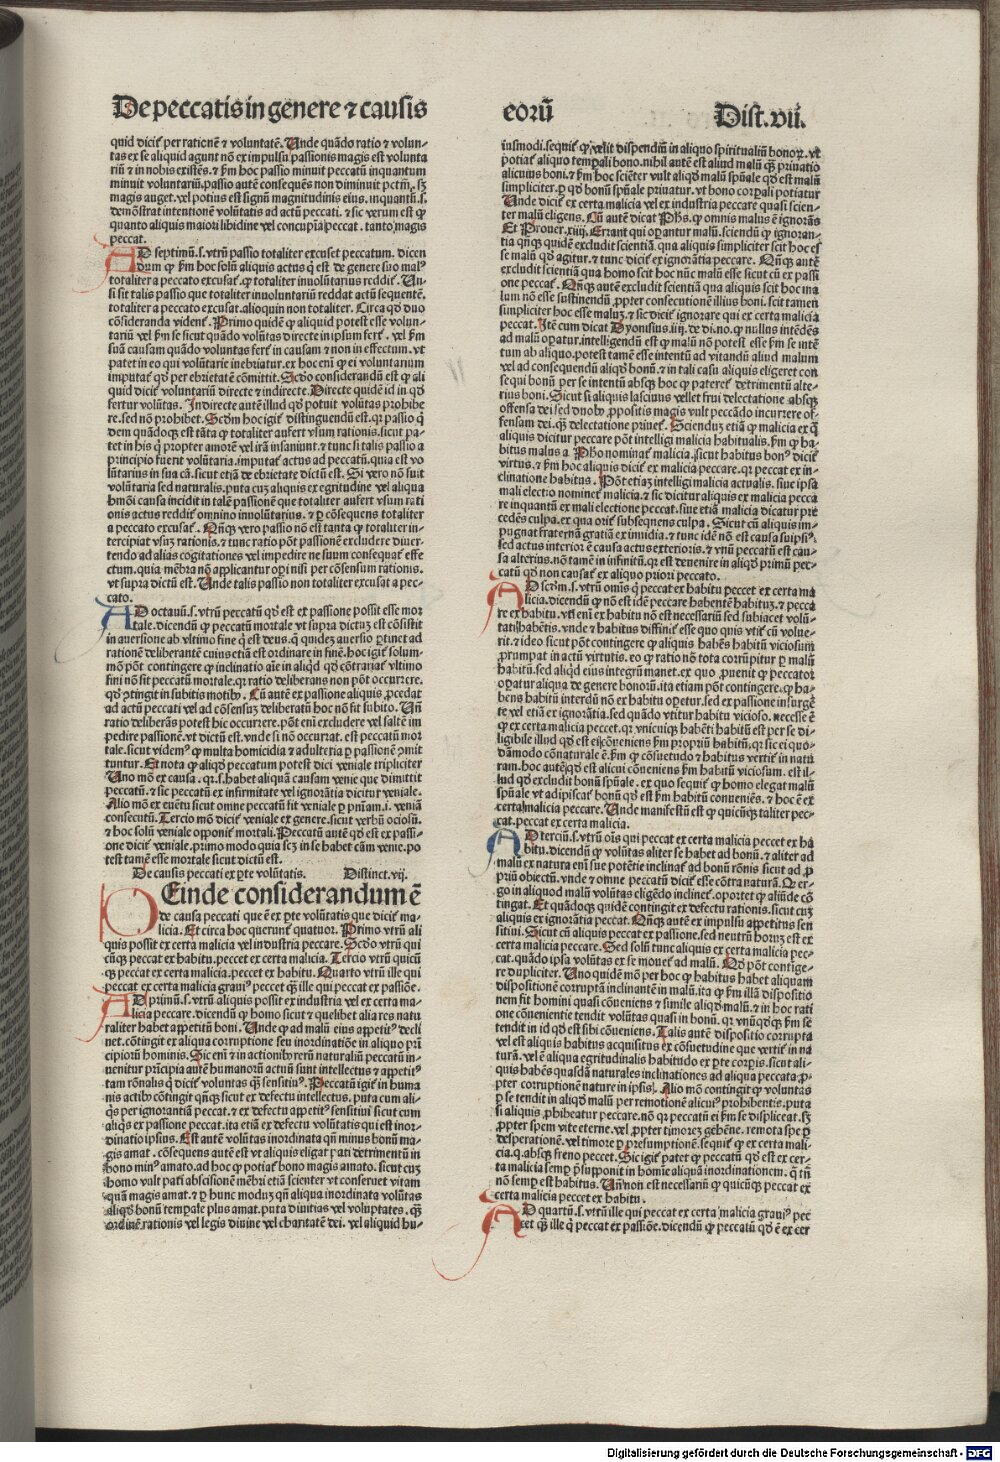 De peccatis in genere ⁊ causis
eorū
Dist. vii.
quid dicit̃ per rationē ⁊ voluntatē. Unde quādo ratio ⁊ volun-
tas ex se aliquid agunt nō ex impulsu passionis magis est volunta
riū ⁊ in nobis existēs. ⁊ ẜm hoc passio minuit peccatū inquantum
minuit voluntariū. passio autē consequēs non diminuit pctm̄. sꝫ
magis auget. vel potius est signū magnitudinis eius. inquantū. s.
demōstrat intentionē volūtatis ad actū peccati. ⁊ sic verum est ꝙ
quanto aliquis maiori libidine vel concupīa peccat. tanto magis
peccat.
AD septimū. s. vtrū passio totaliter excuset peccatum. dicen
dum ꝙ ẜm hoc solū aliquis actus q̇ est de genere suo malꝰ
totaliter a peccato excusat̃. ꝙ totaliter inuolūtarius reddit̃. Un-
si sit talis passio que totaliter inuoluntariū reddat actū sequentē.
totaliter a peccato excusat. alioquin non totaliter. Circa qḋ duo
cōsideranda vident̃. Primo quidē ꝙ aliquid potest esse volun-
tariū vel ẜm se sicut quādo volūtas directe in ipsum fert̃. vel ẜm
suā causam quādo voluntas fert̃ in causam ⁊ non in effectum. vt
patet in eo qui volūtarie inebriatur. ex hoc eni ꝙ ei voluntarium
imputat̃ qḋ per ebrietatē cōmittit. Scḋo considerandū est ꝙ ali
quid dicit̃ voluntariū directe ⁊ indirecte. Directe quidē id in qḋ
fertur volūtas. Indirecte autē illud qḋ potuit volūtas prohibe
re. sed nō prohibet. Scḋm hoc igit̃ distinguendū est. qꝛ passio q̇
dem quādoqꝫ est tāta ꝙ totaliter aufert vsum rationis. sicut pa-
tet in his q̇ propter amorē vel irā insaniunt. ⁊ tunc si talis passio a
principio fuerit volūtaria. imputat̃ actus ad peccatū. quia est vo
lūtarius in sua cā. sicut etiā de ebrietate dictū est. Si vero nō fuit
volūtaria sed naturalis. puta cuꝫ aliquis ex egritudine vel aliqua
hmōi causa incidit in talē passionē que totaliter aufert vsum rati
onis actus reddit̃ omnino inuolūtarius. ⁊ ꝑ cōsequens totaliter
a peccato excusat̃. Qn̄qꝫ vero passio nō est tanta ꝙ totaliter in-
tercipiat vsuꝫ rationis. ⁊ tunc ratio pōt passionē excludere diuer-
tendo ad alias cogitationes vel impedire ne suum consequat̃ effe
ctum. quia mēbra nō applicantur oꝑi nisi per cōsensum rationis.
vt supra dictū est. Unde talis passio non totaliter excusat a pec-
cato.
AD octauū. s. vtrū peccatū qḋ est ex passione possit esse mor
tale. dicendū ꝙ peccatū mortale vt supra dictuꝫ est cōsistit
in auersione ab vltimo fine q̇ est deus. q̇ quidez auersio ꝑtinet ad
rationē deliberantē cuius etiā est ordinare in finē. hoc igit̃ solum-
mō pōt contingere ꝙ inclinatio aīe in aliqḋ qḋ cōtrariat̃ vltimo
fini nō sit peccatū mortale. qꝛ ratio deliberans non pōt occurrere.
qḋ ꝯtingit in subitis motibꝫ. Cū autē ex passione aliquis ꝓcedat
ad actū peccati vel ad cōsensuꝫ deliberatū hoc nō fit subito. Un̄
ratio deliberās potest hic occurrere. pōt eni excludere vel saltē im
pedire passionē. vt dictū est. vnde si nō occurrat. est peccatū mor
tale. sicut videmꝰ ꝙ multa homicidia ⁊ adulteria ꝑ passionē ꝯmit
tuntur. Et nota ꝙ aliqḋ peccatum potest dici veniale tripliciter
Uno mō ex causa. qꝛ. s. habet aliquā causam venie que dimittit
peccatū. ⁊ sic peccatū ex infirmitate vel ignorātia dicitur veniale.
Alio mō ex euētu sicut omne peccatū fit veniale ꝑ pniam. i. veniā
consecutū. Tercio mō dicit̃ veniale ex genere. sicut verbū ociosū.
⁊ hoc solū veniale opponit̃ mortali. Peccatū autē qḋ est ex passi-
one dicit̃ veniale. primo modo quia scꝫ in se habet cām venie. po
test tamē esse mortale sicut dictū est.
De causis peccati ex ꝑte volūtatis. Distinct. vij.
DEinde considerandum ē
de causa peccati que ē ex ꝑte volūtatis que dicit̃ ma-
licia. Et circa hoc querunt̃ quatuor. Primo vtrū ali
quis possit ex certa malicia vel industria peccare. Scḋo vtrū qui
cūqꝫ peccat ex habitu. peccet ex certa malicia. Tercio vtrū quicū
qꝫ peccat ex certa malicia. peccet ex habitu. Quarto vtrū ille qui
peccat ex certa malicia grauiꝰ peccet qꝫ ille qui peccat ex passiōe.
AD primū. s. vtrū aliquis possit ex industria vel ex certa ma-
licia peccare. dicendū ꝙ homo sicut ⁊ quelibet alia res natu
raliter habet appetitū boni. Unde ꝙ ad malū eius appetitꝰ decli
net. cōtingit ex aliqua corruptione seu inordinatiōe in aliquo pri
cipiorū hominis. Sic eni ⁊ in actionibꝫ rerū naturaliū peccatū in-
uenitur prīcipia autē humanorū actuū sunt intellectus ⁊ appetitꝰ
tam rōnalis q̇ dicit̃ voluntas qꝫ sensitiuꝰ. Peccatū igit̃ in huma
nis actibꝫ cōtingit qn̄qꝫ sicut ex defectu intellectus. puta cum ali-
q̇s per ignorantiā peccat. ⁊ ex defectu appetitꝰ sensitiui sicut cum
aliq̇s ex passione peccat. ita etiā ex defectu volūtatis qui est inor-
dinatio ipsius. Est autē volūtas inordinata qn̄ minus bonū ma-
gis amat. cōsequens autē est vt aliquis eligat pati detrimentū in
bono minꝰ amato. ad hoc ꝙ potiat̃ bono magis amato. sicut cuꝫ
homo vult pati abscisionē mēbri etiā scienter vt conseruet vitam
quā magis amat. ⁊ ꝑ hunc moduꝫ qn̄ aliqua inordinata volūtas
aliqḋ bonū tempale plus amat. puta diuitias vel voluptates. qꝫ
ordinē rationis vel legis diuine vel charitatē dei. vel aliquid hu-
iusmodi. sequit̃ ꝙ velit dispendiū in aliquo spiritualiū honoꝝ. vt
potiat̃ aliquo tempali bono. nihil autē est aliud malū qꝫ priuatio
alicuius boni. ⁊ ẜm hoc sciēter vult aliqḋ malū spūale qḋ est malū
simpliciter. ꝑ qḋ bonū spūale priuatur. vt bono corꝑali potiatur
Unde dicit̃ ex certa malicia vel ex industria peccare quasi scien-
ter malū eligens. Cū autē dicat Phs. ꝙ omnis malus ē ignorās
Et Prouer. xiiij. Errant qui oꝑantur malū. sciendū ꝙ ignoran-
tia qn̄qꝫ quidē excludit scientiā. qua aliquis simpliciter scit hoc es
se malū qḋ agitur. ⁊ tunc dicit̃ ex ignorātia peccare. Qn̄qꝫ autē
excludit scientiā qua homo scit hoc nūc malū esse sicut cū ex passi
one peccat̃. Qn̄qꝫ autē excludit scientiā qua aliquis scit hoc ma
lum nō esse sustinendū. ꝓpter consecutionē illius boni. scit tamen
simpliciter hoc esse maluꝫ. ⁊ sic dicit̃ ignorare qui ex certa malicia
peccat. Itē cum dicat Dyonisius. iiij. de di. no. ꝙ nullus intēdēs
ad malū oꝑatur. intelligendū est ꝙ malū nō potest esse ẜm se intē
tum ab aliquo. potest tamē esse intentū ad vitandū aliud malum
vel ad consequendū aliqḋ bonū. ⁊ in tali casu aliquis eligeret con
sequi bonū per se intentū absqꝫ hoc ꝙ pateret̃ detrimentū alte-
rius boni. Sicut si aliquis lasciuus vellet frui delectatione absqꝫ
offensa dei sed duobꝫ ꝓpositis magis vult peccādo incurrere of-
fensam dei. qꝫ delectatione priuet̃. Sciendū etiā ꝙ malicia ex q̇
aliquis dicitur peccare pōt intelligi malicia habitualis. ẜm ꝙ ha-
bitus malus a Pho nominat̃ malicia. sicut habitus bonꝰ dicit̃
virtus. ⁊ ẜm hoc aliquis dicit̃ ex malicia peccare. qꝛ peccat ex in-
clinatione habitus. Pōt etiaꝫ intelligi malicia actualis. siue ipsa
mali electio nominet̃ malicia. ⁊ sic dicitur aliquis ex malicia pecca
re inquantū ex mali electione peccat. siue etiā malicia dicatur pre
cedēs culpa. ex qua orit̃ subsequens culpa. Sicut cū aliquis im-
pugnat fraternā gratiā ex inuidia. ⁊ tunc idē nō est causa suipsiꝰ.
sed actus interior ē causa actus exterioris. ⁊ vnū peccatū est cau-
sa alterius. nō tamē in infinitū. qꝛ est deuenire in aliqḋ primū pec-
catū qḋ non causat̃ ex aliquo priori peccato.
AD scḋm. s. vtrū omīs q̇ peccat ex habitu peccet ex certa ma
licia. dicendū ꝙ nō est idē peccare habentē habituꝫ. ⁊ pecca
re ex habitu. vti eni ex habitu nō est necessariū sed subiacet volū-
tati habētis. vnde ⁊ habitus diffinit̃ esse quo quis vtit̃ cū volue-
rit. ⁊ ideo sicut pōt contingere ꝙ aliquis habēs habitū viciosum
ꝓrumpat in actū virtutis. eo ꝙ ratio nō tota corrūpitur ꝑ malū
habitū. sed aliqḋ eius integrū manet. ex quo ꝓuenit ꝙ peccator
oꝑatur aliqua de genere bonorū. ita etiam pōt contingere. ꝙ ha-
bens habitū interdū nō ex habitu oꝑetur. sed ex passione insurgē
te vel etiā ex ignorātia. sed quādo vtitur habitu vicioso. necesse ē
ꝙ ex certa malicia peccet. qꝛ vnicuiqꝫ habēti habitū est per se di-
ligibile illud qḋ est ei cōueniens ẜm propriū habitū. qꝛ sic ei quo-
dāmodo cōnaturale ē. ẜm ꝙ cōsuetudo ⁊ habitus vertit̃ in natu
ram. hoc autē qḋ est alicui cōueniens ẜm habitū viciosum. est il-
lud qḋ excludit bonū spūale. ex quo sequit̃ ꝙ homo elegat malū
spūale vt adipiscat̃ bonū qḋ est ẜm habitū conueniēs. ⁊ hoc ē ex
certa malicia peccare. Unde manifestū est ꝙ quicūqꝫ taliter pec-
cat. peccat ex certa malicia.
AD terciū. s. vtrū oīs qui peccat ex certa malicia peccet ex ha
bitu. dicendū ꝙ volūtas aliter se habet ad bonū. ⁊ aliter ad
malū ex natura eni sue potētie inclinat̃ ad bonū rōis sicut ad pro
priū obiectū. vnde ⁊ omne peccatū dicit̃ esse cōtra naturā. Q er-
go in aliquod malū volūtas eligēdo inclinet̃. oportet ꝙ aliūde cō
tingat. Et quādoqꝫ quidē contingit ex defectu rationis. sicut cuꝫ
aliquis ex ignorātia peccat. Qn̄qꝫ autē ex impulsu appetitus sen
sitiui. Sicut cū aliquis peccat ex passione. sed neutrū hoꝝꝫ est ex
certa malicia peccare. Sed solū tunc aliquis ex certa malicia pec-
cat. quādo ipsa volūtas ex se mouet̃ ad malū. Qḋ pōt continge-
re dupliciter. Uno quidē mō per hoc ꝙ habitus habet aliquam
dispositionē corruptā inclinantē in malū. ita ꝙ ẜm illā dispositio
nem fit homini quasi cōueniens ⁊ simile aliqḋ malū. ⁊ in hoc rati
one cōuenientie tendit volūtas quasi in bonū. qꝛ vnūqḋqꝫ ẜm se
tendit in id qḋ est sibi cōueniens. Talis autē dispositio corrupta
vel est aliquis habitus acquisitus ex cōsuetudine que vertit̃ in na
turā. vel ē aliqua egritudinalis habitudo ex ꝑte corꝑis. sicut ali-
quis habēs quasdā naturales inclinationes ad aliqua peccata. ꝓ-
pter corruptionē nature in ipso. Alio mō contingit ꝙ voluntas
ꝑ se tendit in aliqḋ malū per remotionē alicuiꝰ prohibentis. puta
si aliquis ꝓhibeatur peccare. nō qꝛ peccatū ei ẜm se displiceat. sꝫ
ꝓpter spem vite eterne. vel ꝓpter timoreꝫ gehēne. remota spe ꝑ
desperationē. vel timore ꝑ presumptionē. sequit̃ ꝙ ex certa mali-
cia. q. absqꝫ freno peccet. Sic igit̃ patet ꝙ peccatū qḋ est ex cer-
ta malicia semꝑ p̄supponit in homīe aliquā inordinationem. q̇ tn̄
nō semꝑ est habitus. Un̄ non est necessariū ꝙ quicūqꝫ peccat ex
certa malicia peccet ex habitu.
AD quartū. s. vtrū ille qui peccat ex certa malicia grauiꝰ pec
cet qꝫ ille q̇ peccat ex passiōe. dicendū ꝙ peccatū qḋ ē ex cer
Digitalisierung gefördert durch die Deutsche Forschungsgemeinschaft - DFG